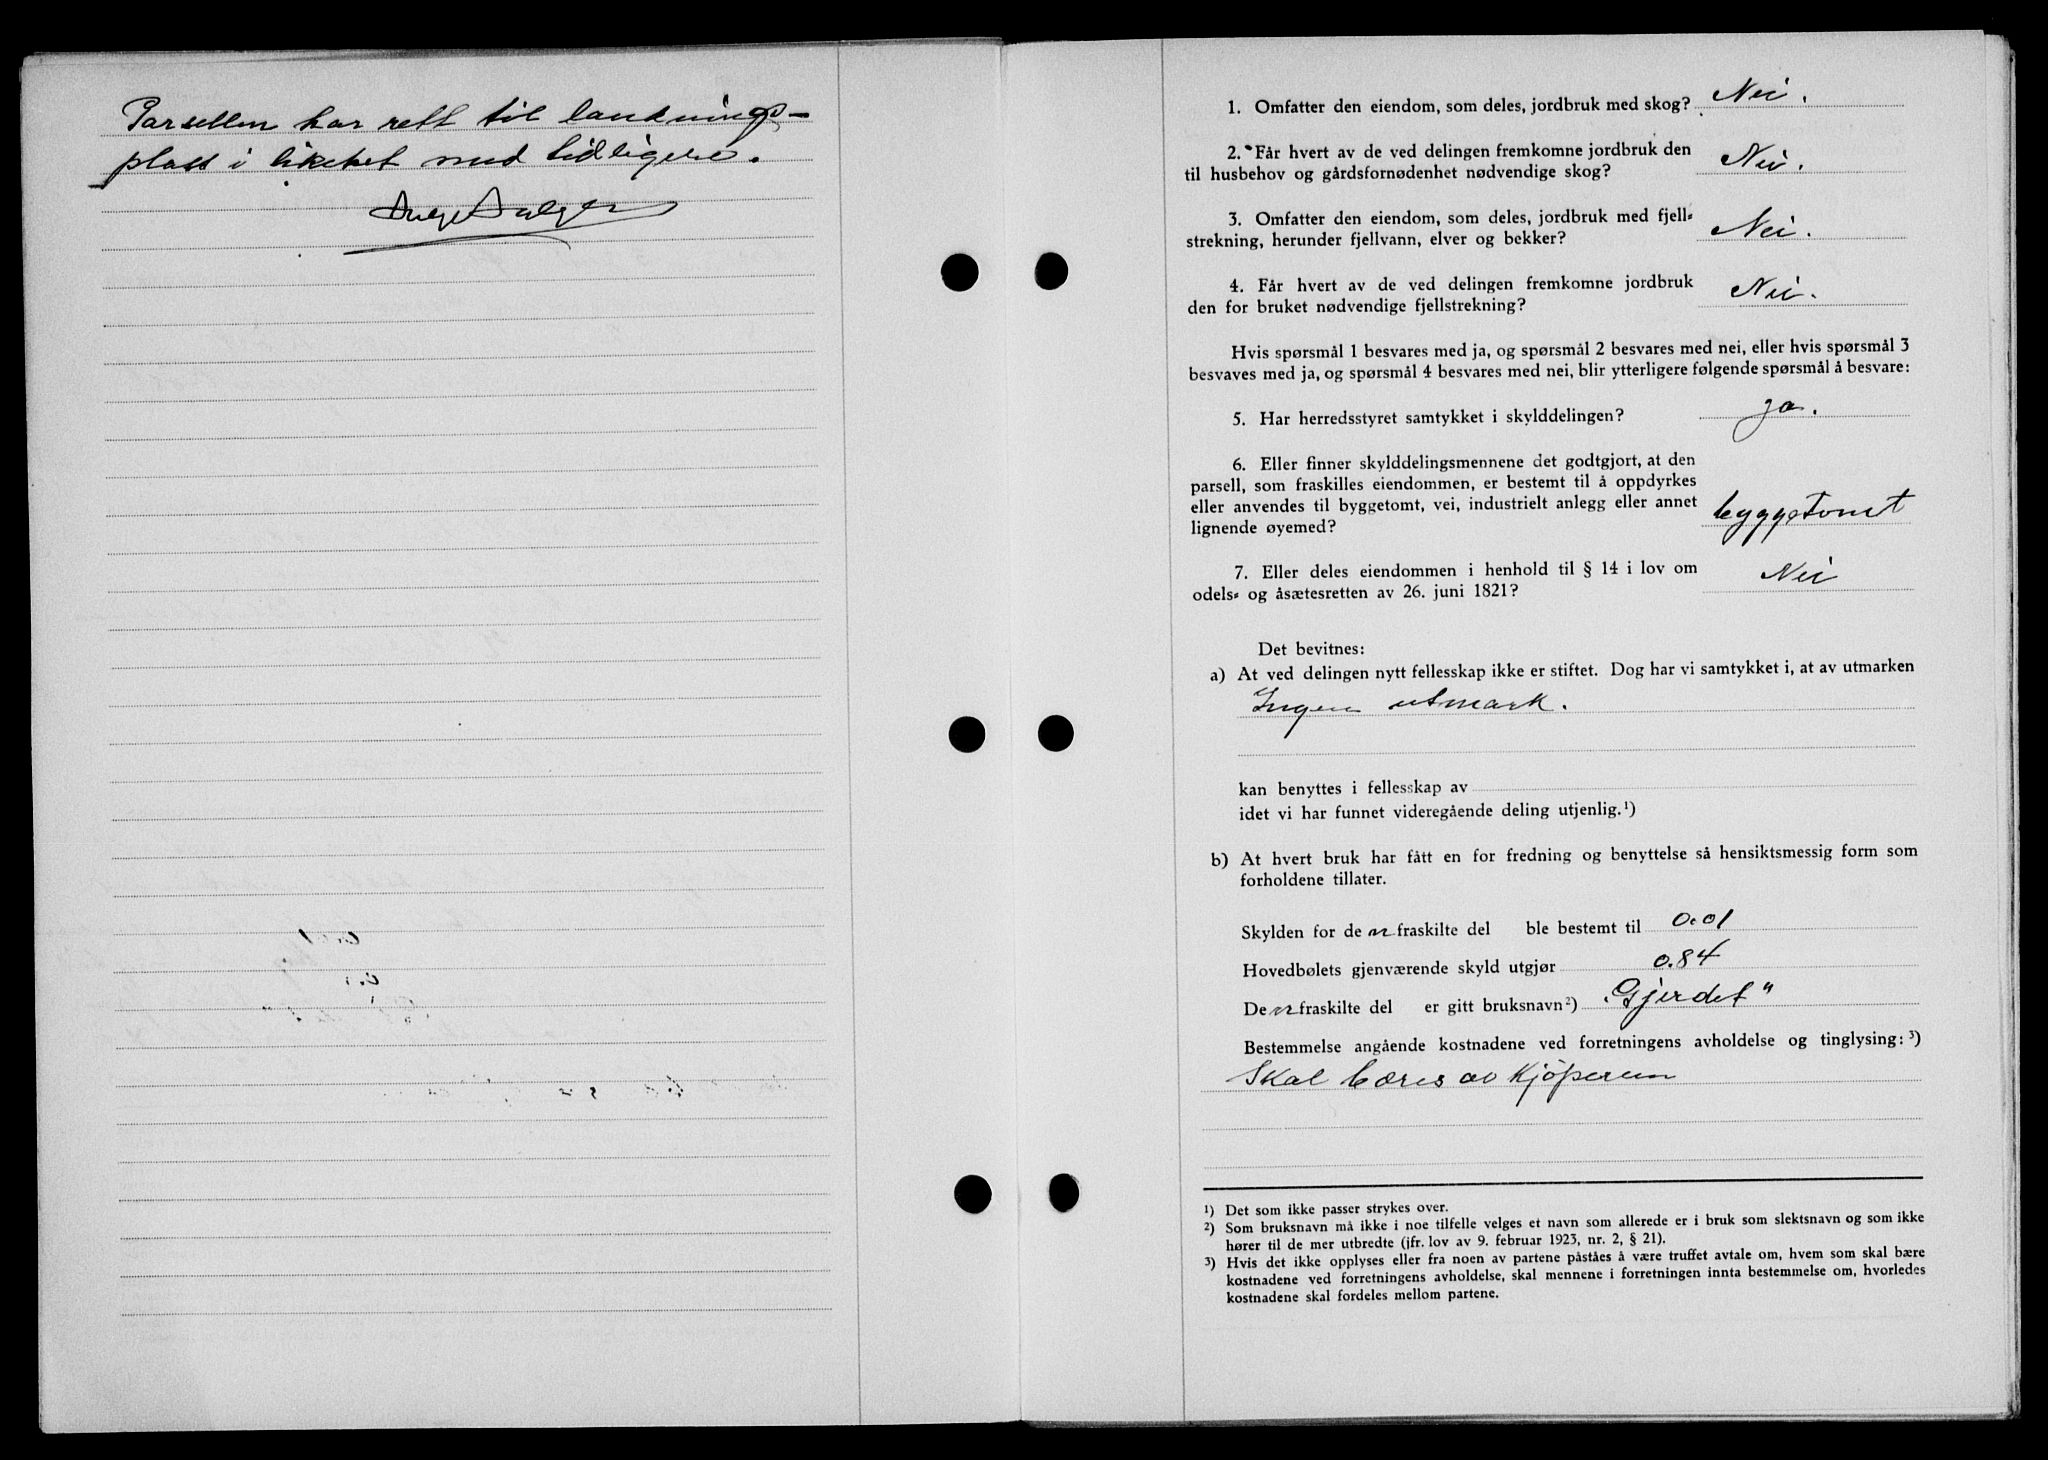 Parsellen har rett til landnings-
plass i likehet med tidligere.
1. Omfatter den eiendom, som deles, jordbruk med skog? Nei.
2. Får hvert av de ved delingen fremkomne jordbruk den
til husbehov og gårdsfornødenhet nødvendige skog? Nei.
3. Omfatter den eiendom, som deles, jordbruk med fjell-
strekning, herunder fjellvann, elver og bekker? Nei.
4. Får hvert av de ved delingen fremkomne jordbruk
den for bruket nødvendige fjellstrekning? Nei.
Hvis spørsmål 1 besvares med ja, og spørsmål 2 besvares med nei, eller hvis spørsmål 3
besvaves med ja, og spørsmål 4 besvares med nei, blir ytterligere følgende spørsmål å besvare:
5. Har herredsstyret samtykket i skylddelingen? ja.
6. Eller finner skylddelingsmennene det godtgjort, at den
parsell, som fraskilles eiendommen, er bestemt til å oppdyrkes
eller anvendes til byggetomt, vei, industrielt anlegg eller annet
lignende øyemed? byggetomt
7. Eller deles eiendommen i henhold til § 14 i lov om
odels- og åsætesretten av 26. juni 1821? Nei
Det bevitnes:
a) At ved delingen nytt fellesskap ikke er stiftet. Dog har vi samtykket i, at av utmarken
Ingen utmark.
kan benyttes i fellesskap av
idet vi har funnet videregående deling utjenlig.¹)
b) At hvert bruk har fått en for fredning og benyttelse så hensiktsmessig form som
forholdene tillater.
Skylden for den fraskilte del ble bestemt til 0.01
Hovedbølets gjenværende skyld utgjør 0.84
Den fraskilte del er gitt bruksnavn²) „Gjerdet"
Bestemmelse angående kostnadene ved forretningens avholdelse og tinglysing:³)
Skal bæres av Kjøperen
¹) Det som ikke passer strykes over.
²) Som bruksnavn må ikke i noe tilfelle velges et navn som allerede er i bruk som slektsnavn og som ikke
hører til de mer utbredte (jfr. lov av 9. februar 1923, nr. 2, § 21).
³) Hvis det ikke opplyses eller fra noen av partene påståes å være truffet avtale om, hvem som skal bære
kostnadene ved forretningens avholdelse, skal mennene i forretningen innta bestemmelse om, hvorledes
kostnadene skal fordeles mellom partene.